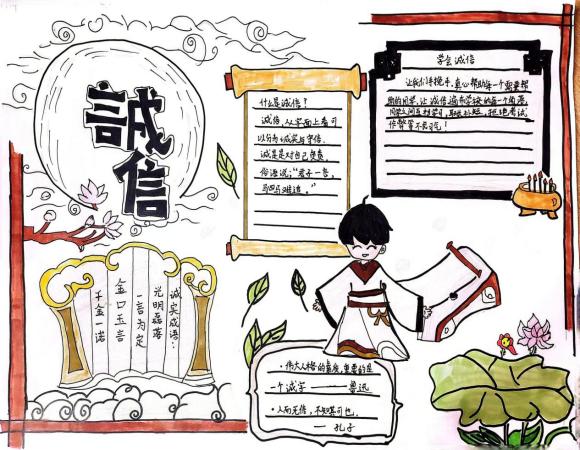 誠信
什么是诚信?
诚信,从字面上看可
以分为诚实与守信。
诚是是对自己负责,
俗语说;“君子一言,
驷马难追。”
学会诚信
让我们手挽手,真心帮助每一个需要帮
助的同学,让诚信遍布学校的每一个角落。
同学之间互相学习,取长补短,拒绝考试
作弊等不良习气!
诚实成语:
光明磊落
一言为定
金口玉言
千金一诺
·伟大人格的素质,重要的是
一个诚字——鲁迅
·人而无信,不知其可也。
—孔子